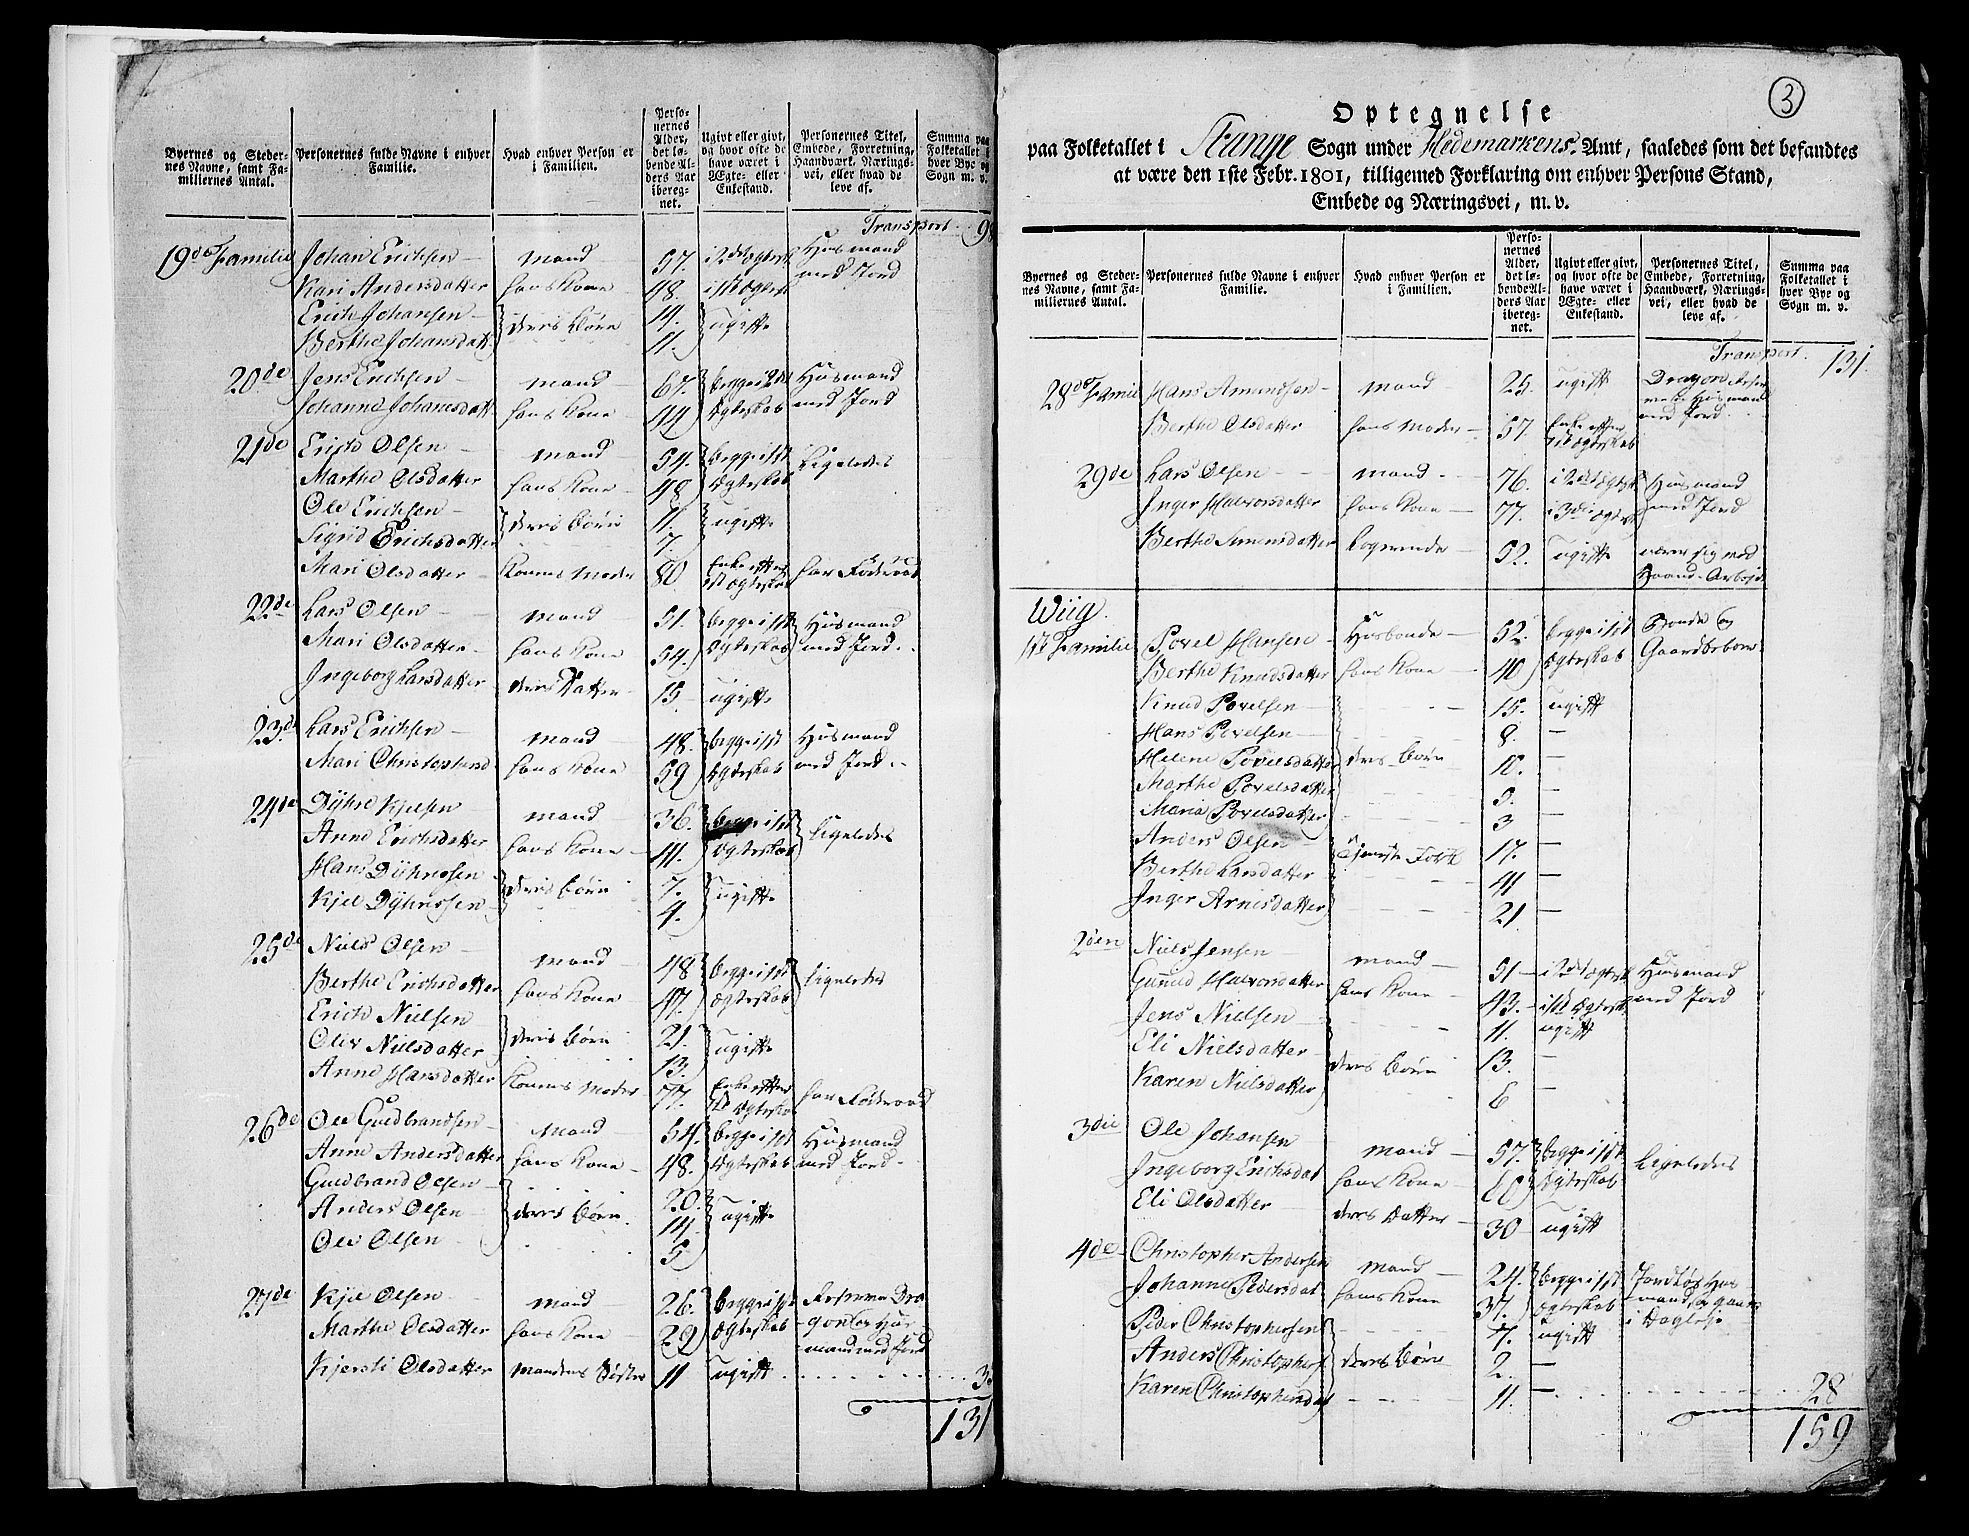 Byernes og Steder-
nes Navne, samt Fa-
miliernes Antal.
Personernes fulde Navne i enhver
Familie.
Hvad enhver Person er
i Familien.
Perso-
nernes
Alder,
det lø-
bende Al-
ders Aar
ibereg-
net.
Ugivt eller givt,
og hvor ofte de
have været i
Ægte- eller
Enkestand.
Personernes Titel,
Embede, Forretning,
Haandværk, Nærings-
vei, eller hvad de
leve af.
Summa paa
Folketallet i
hver Bye og
Sogn m. v.
Transport 98
19de Familie Johan Erichsen mand 57. i 2det Ægtesk Huusmand
Kari Andersdatter hans Kone 48. i 1ste Ægtesk med Jord
Erich Johansen 14.
deres Børn ugifte
Berthe Johansdatt 11.
20de Jens Erichsen mand 67. Huusmand
Johanne Johansdatt hans Kone 44 Ægteskab med Jord
21de Erich Olsen mand 54. begge i 1ste Ligeledes
Marthe Olsdatter hans Kone 48 Ægteskab
Ole Erichsen 11.
deres Børn ugifte
Sigrid Erichsdatter 7.
Mari Olsdatter Konens Moder 80 Enke efter har Føderaad
1ste Ægteskab
22de Lars Olsen mand 51. begge i 1ste Huusmand
Mari Olsdatter hans Kone 54. Ægteskab med Jord
Ingeborg Larsdatter deres Datter 15 ugifte
23de Lars Erichsen mand 48. begge i 1ste Huusmand
Mari Christophersd hans Kone 59 Ægteskab med Jord
24de Dÿhre Kjelsen mand 36. begge i 1ste Ligeledes
Anne Erichsdatter hans Kone 41. Ægteskab
Hans Dÿhresen 7.
deres Børn ugifte
Kjel Dÿhresen 4.
25de Niels Olsen mand 48 begge i 1ste Ligeledes
Berthe Erichsdatter hans Kone 47. Ægteskab
Erich Nielsen 21.
deres Børn ugifte
Oliv Nielsdatter 13.
Anne Hansdatter Konens Moder 77. Enke efter har Føderaad
1ste Ægteskab
26de Ole Gudbrandsen mand 54. begge i 1ste Huusmand
Anne Andersdatter hans Kone 48. Ægteskab med Jord
Gudbrand Olsen 20.
Anders Olsen deres Børn 14. ugifte
Ole Olsen 5
27de Kjel Olsen mand 26. begge i 1ste Dra
Marthe Olsdatter hans Kone 29 Ægteskab gon og Huus
mand med Jord
Kjersti Olsdatter mandens Søster 11 ugift
131
3
Optegnelse
paa Folketallet i Stange Sogn under Hedemarkens Amt, saaledes som det befandtes
at være den 1ste Febr. 1801, tilligemed Forklaring om enhver Persons Stand,
Embede og Næringsvei, m. v.
Byernes og Steder-
nes Navne, samt Fa-
miliernes Antal.
Personernes fulde Navne i enhver
Familie.
Hvad enhver Person er
i Familien.
Perso-
nernes
Alder,
det lø-
bende Al-
ders Aar
ibereg-
net.
Ugivt eller givt,
og hvor ofte de
have været i
Ægte- eller
Enkestand.
Personernes Titel,
Embede, Forretning,
Haandværk, Nærings-
vei, eller hvad de
leve af.
Summa paa
Folketallet i
hver Bye og
Sogn m. v.
Transport. 131.
28de Famil Hans Amundsen mand 25. ugift Dragon
Huusmand
med Jord
Berthe Olsdatter hans Moder 57. Enke efter
1ste Ægteskab
29de Lars Olsen mand 76. i 2det Ægtesk Huusmand
Inger Halvorsdatter hans Kone 77. i 3die Ægtesk med Jord
Berthe Simensdatter Logerende 52. ugift nærer sig ved
Haand-Arbejde
Wiig.
1ste Familie Povel Hansen Huusbonde 52. begge i 1ste Bonde og
Berthe Knudsdatter hans Kone 40 Ægteskab Gaardbeboer
Knud Povelsen 15. ugift
Hans Povelsen 8. –
Helene Povelsdatter deres Børn 10. –
Marthe Povelsdatter 5. –
Maria Povelsdatter 3 –
Anders Olsen 17. –
Berthe Larsdatter Tjeneste Folk 41 –
Inger Arnesdatter 21 –
2den Niels Jensen mand 51 i 2det Ægtesk Huusmand
Gunild Halvorsdatter hans Kone 43. i 1ste Ægtesk med Jord
Jens Nielsen 11. ugift
Eli Nielsdatter deres Børn 13. –
Karen Nielsdatter 6 –
3die Ole Johansen mand 57. begge i 1ste Ligeledes
Ingeborg Erichsdat hans Kone 60 Ægteskab
Eli Olsdatter deres Datter 30 ugift
4de Christopher Andersen mand 24. begge i 1ste Jordløs Huus
Johanne Pedersdat hans Kone 37. Ægteskab mand, og gaaer
Peder Christophersen 4. ugift i Dagleje
Anders Christophers deres Børn 2. –
Karen Christophersdat 11. –
28
159